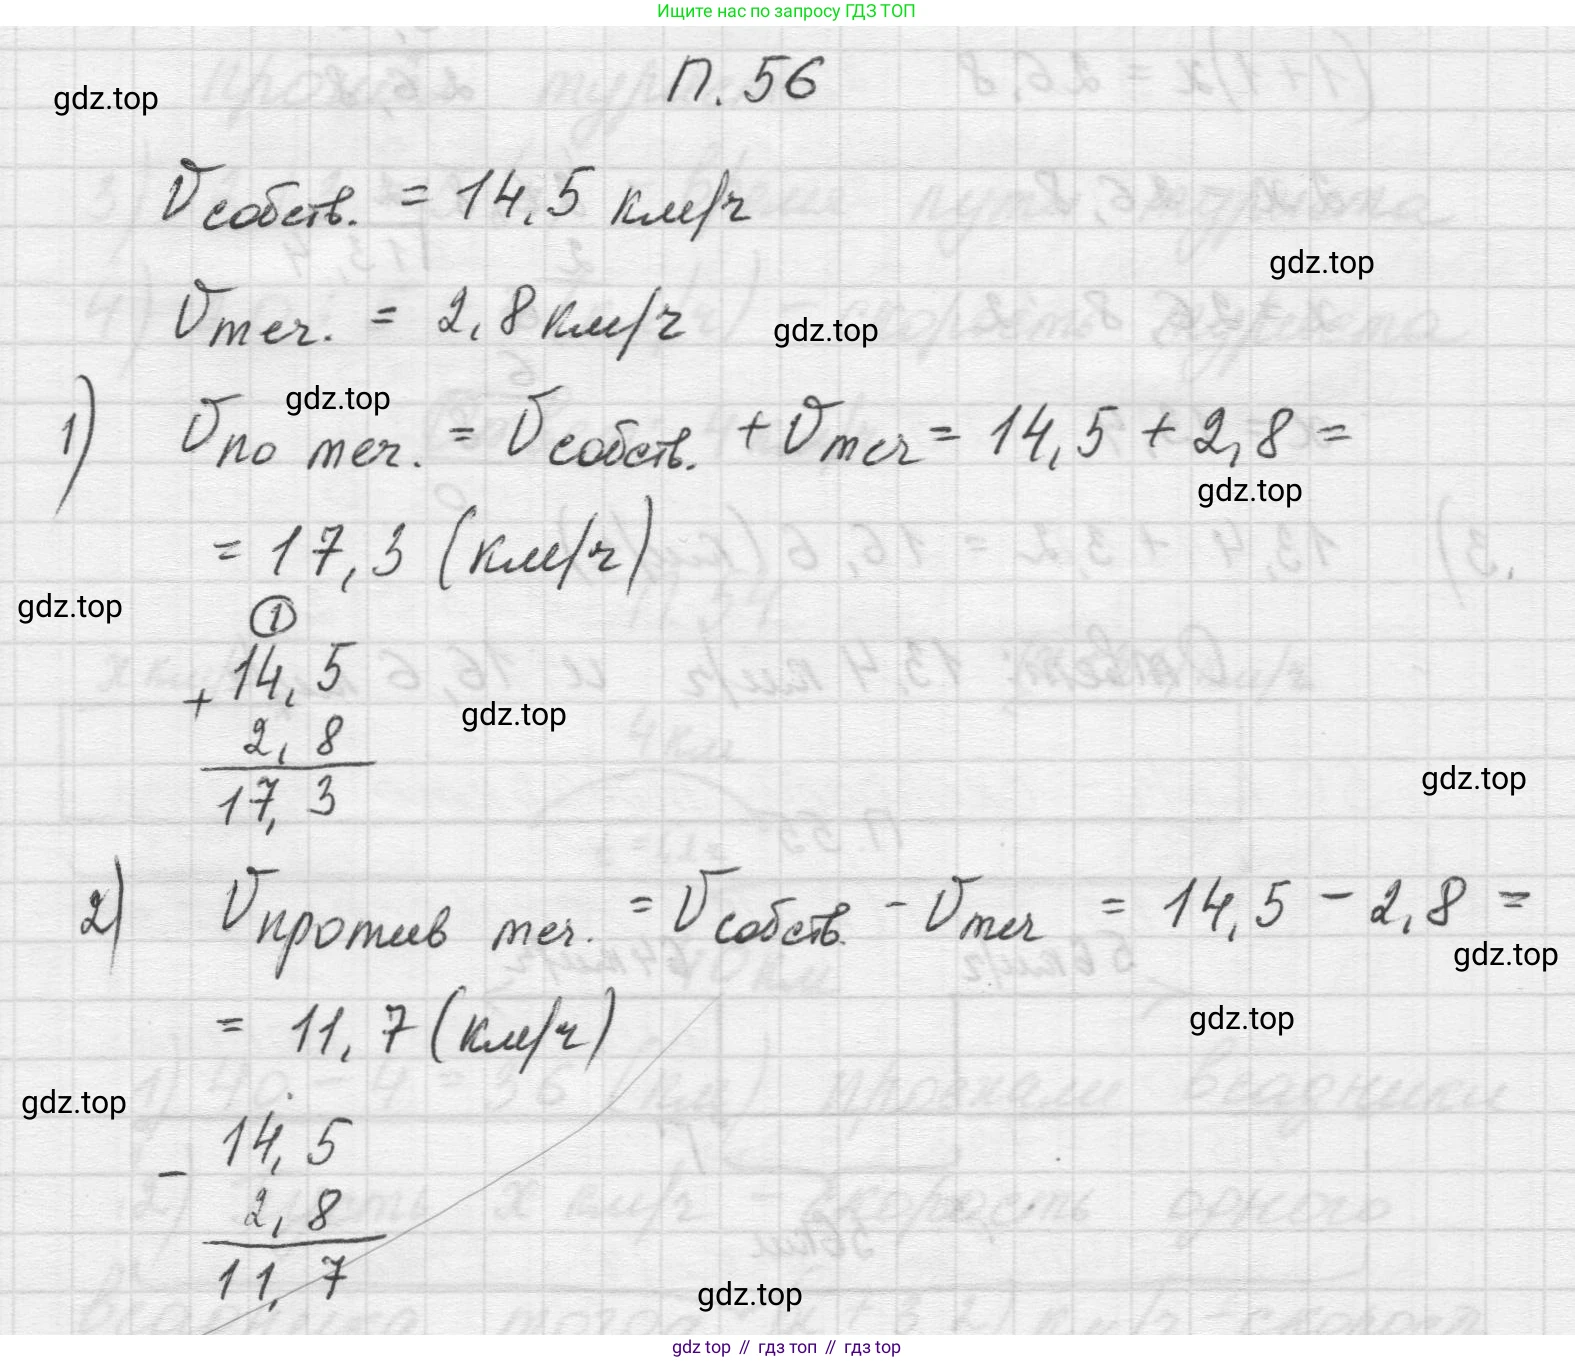 Ищите нас по запросу ГДЗ ТОП
П. 56
gdz.top
Vсобств. = 14,5 км/ч
gdz.top
Vтеч. = 2,8 км/ч
gdz.top
gdz.top
1) Vпо теч. = Vсобств. + Vтеч = 14,5 + 2,8 =
gdz.top
= 17,3 (км/ч)
gdz.top
1
+ 14,5
gdz.top
2,8
17,3
gdz.top
2) Vпротив теч. = Vсобств. - Vтеч = 14,5 - 2,8 =
gdz.top
= 11,7 (км/ч)
gdz.top
gdz.top
- 14,5
2,8
11,7
gdz.top
gdz top // гдз топ // гдз top